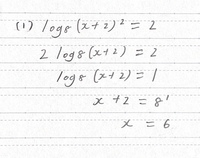 (1) log₈ (x+2)² = 2
2 log₈ (x+2) = 2
log₈ (x+2) = 1
x +2 = 8¹
x = 6